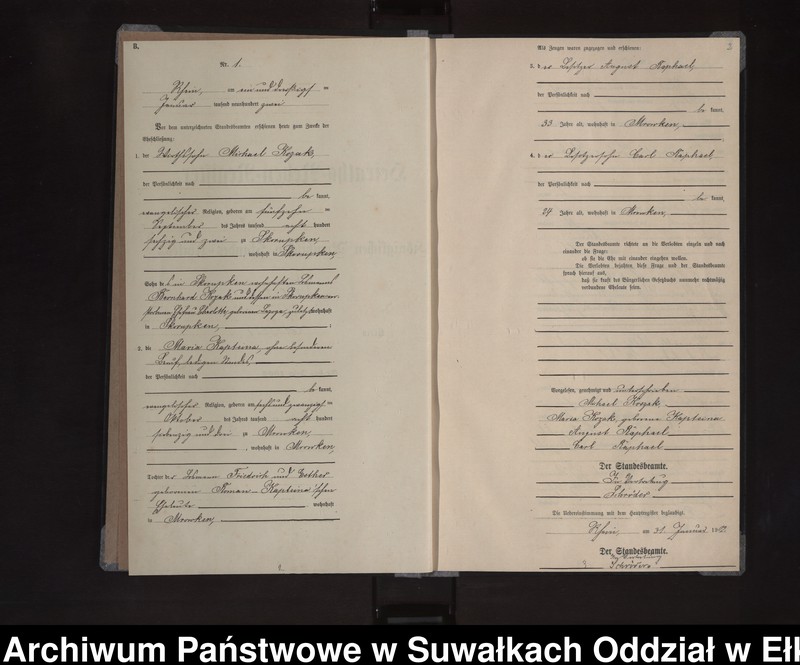 B.
Nr. 1.
Rhein, am ein und dreißigsten
Januar tausend neunhundert zwei
Vor dem unterzeichneten Standesbeamten erschienen heute zum Zwecke der
Eheschließung:
1. der Wirthssohn Michael Kozak,
der Persönlichkeit nach
be kannt,
evangelischer Religion, geboren am fünfzehn
September des Jahres tausend acht hundert
sechzig und zwei zu Skorupken,
, wohnhaft in Skorupken,
Sohn des in Skorupken
Bernhard Kozak und dessen in Skorupken ver-
storbenen Ehefrau Charlotte, geborenen
in Skorupken,
2. die Maria Kapteina, ohne besonderen
Beruf, ledigen Standes,
der Persönlichkeit nach
be kannt,
evangelischer Religion, geboren am sechs und zwanzigsten
Oktober des Jahres tausend acht hundert
siebenzig und drei zu Mrowken,
, wohnhaft in Mrowken,
Tochter der Friedrich und Esther
geborenen Roman-Kapteina'schen
Eheleute wohnhaft
in Mrowken,
2
Als Zeugen waren zugezogen und erschienen:
3. der Besitzer August Kaphael,
der Persönlichkeit nach
be kannt,
33 Jahre alt, wohnhaft in Mrowken,
4. der Besitzersohn Carl Kaphael,
der Persönlichkeit nach
be kannt,
24 Jahre alt, wohnhaft in Mrowken,
Der Standesbeamte richtete an die Verlobten einzeln und nach
einander die Frage:
ob sie die Ehe mit einander eingehen wollen.
Die Verlobten bejahten diese Frage und der Standesbeamte
sprach hierauf aus,
daß sie kraft des Bürgerlichen Gesetzbuchs nunmehr rechtmäßig
verbundene Eheleute seien.
Vorgelesen, genehmigt und unterschrieben
Michael Kozak
Maria Kozak, geborene Kapteina
August Kaphael
Carl Kaphael
Der Standesbeamte.
In Vertretung
Schröder
Die Uebereinstimmung mit dem Hauptregister beglaubigt.
Rhein, am 31. Januar 1902.
Der Standesbeamte.
In Vertretung
Schröder
Archiwum Państwowe w Suwałkach Oddział w Ełk